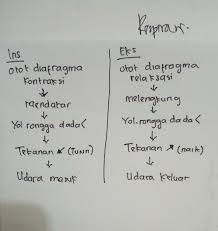 Respirasi.
Ins
otot diafragma
kontraksi
↓
Mendatar
↓
Vol. rongga dada <
↓
Tekanan ↙ (turun)
↓
Udara masuk
Eks
otot diafragma
relaksasi
↓
Melengkung
↓
Vol. rongga dada <
↓
Tekanan ↗ (naik)
↓
Udara keluar